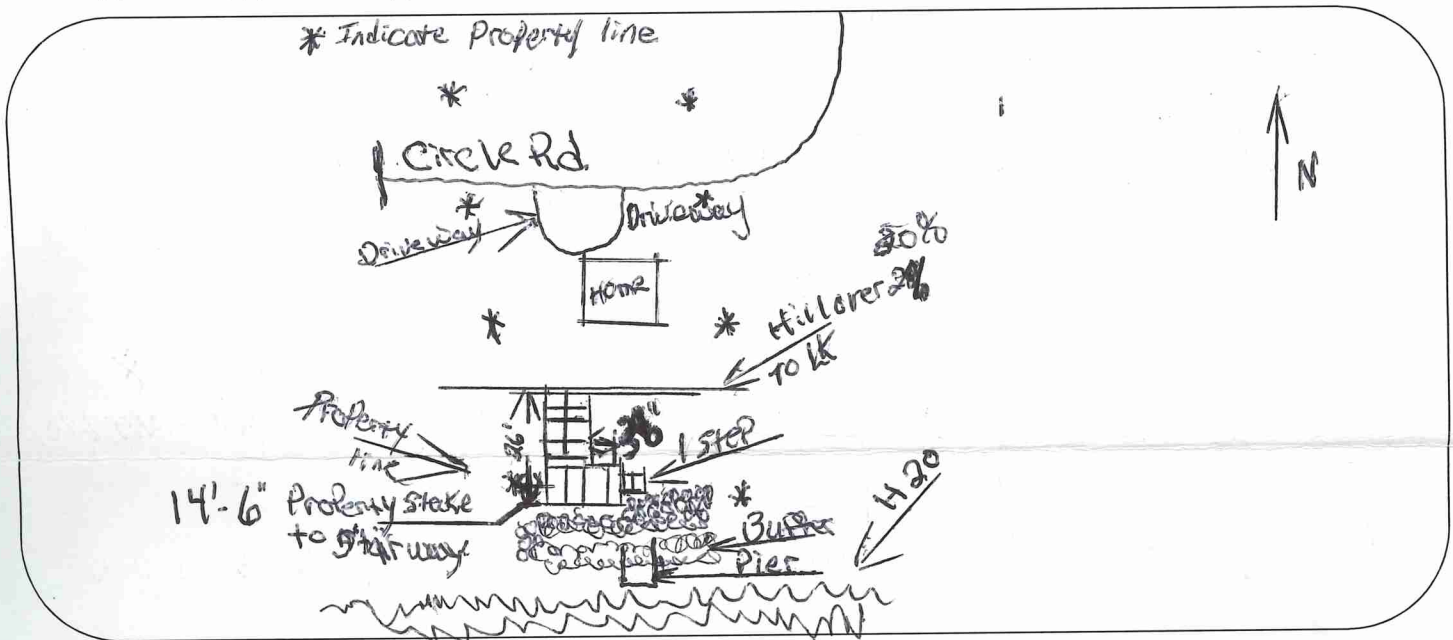 * Indicate Property line
Circle Rd.
N
Driveway
Driveway
HOME
20%
Hill over 20%
TO LK
Property
line
26'
1 Step
14'-6" Property stake
to Stairway
H20
Buffer
Pier